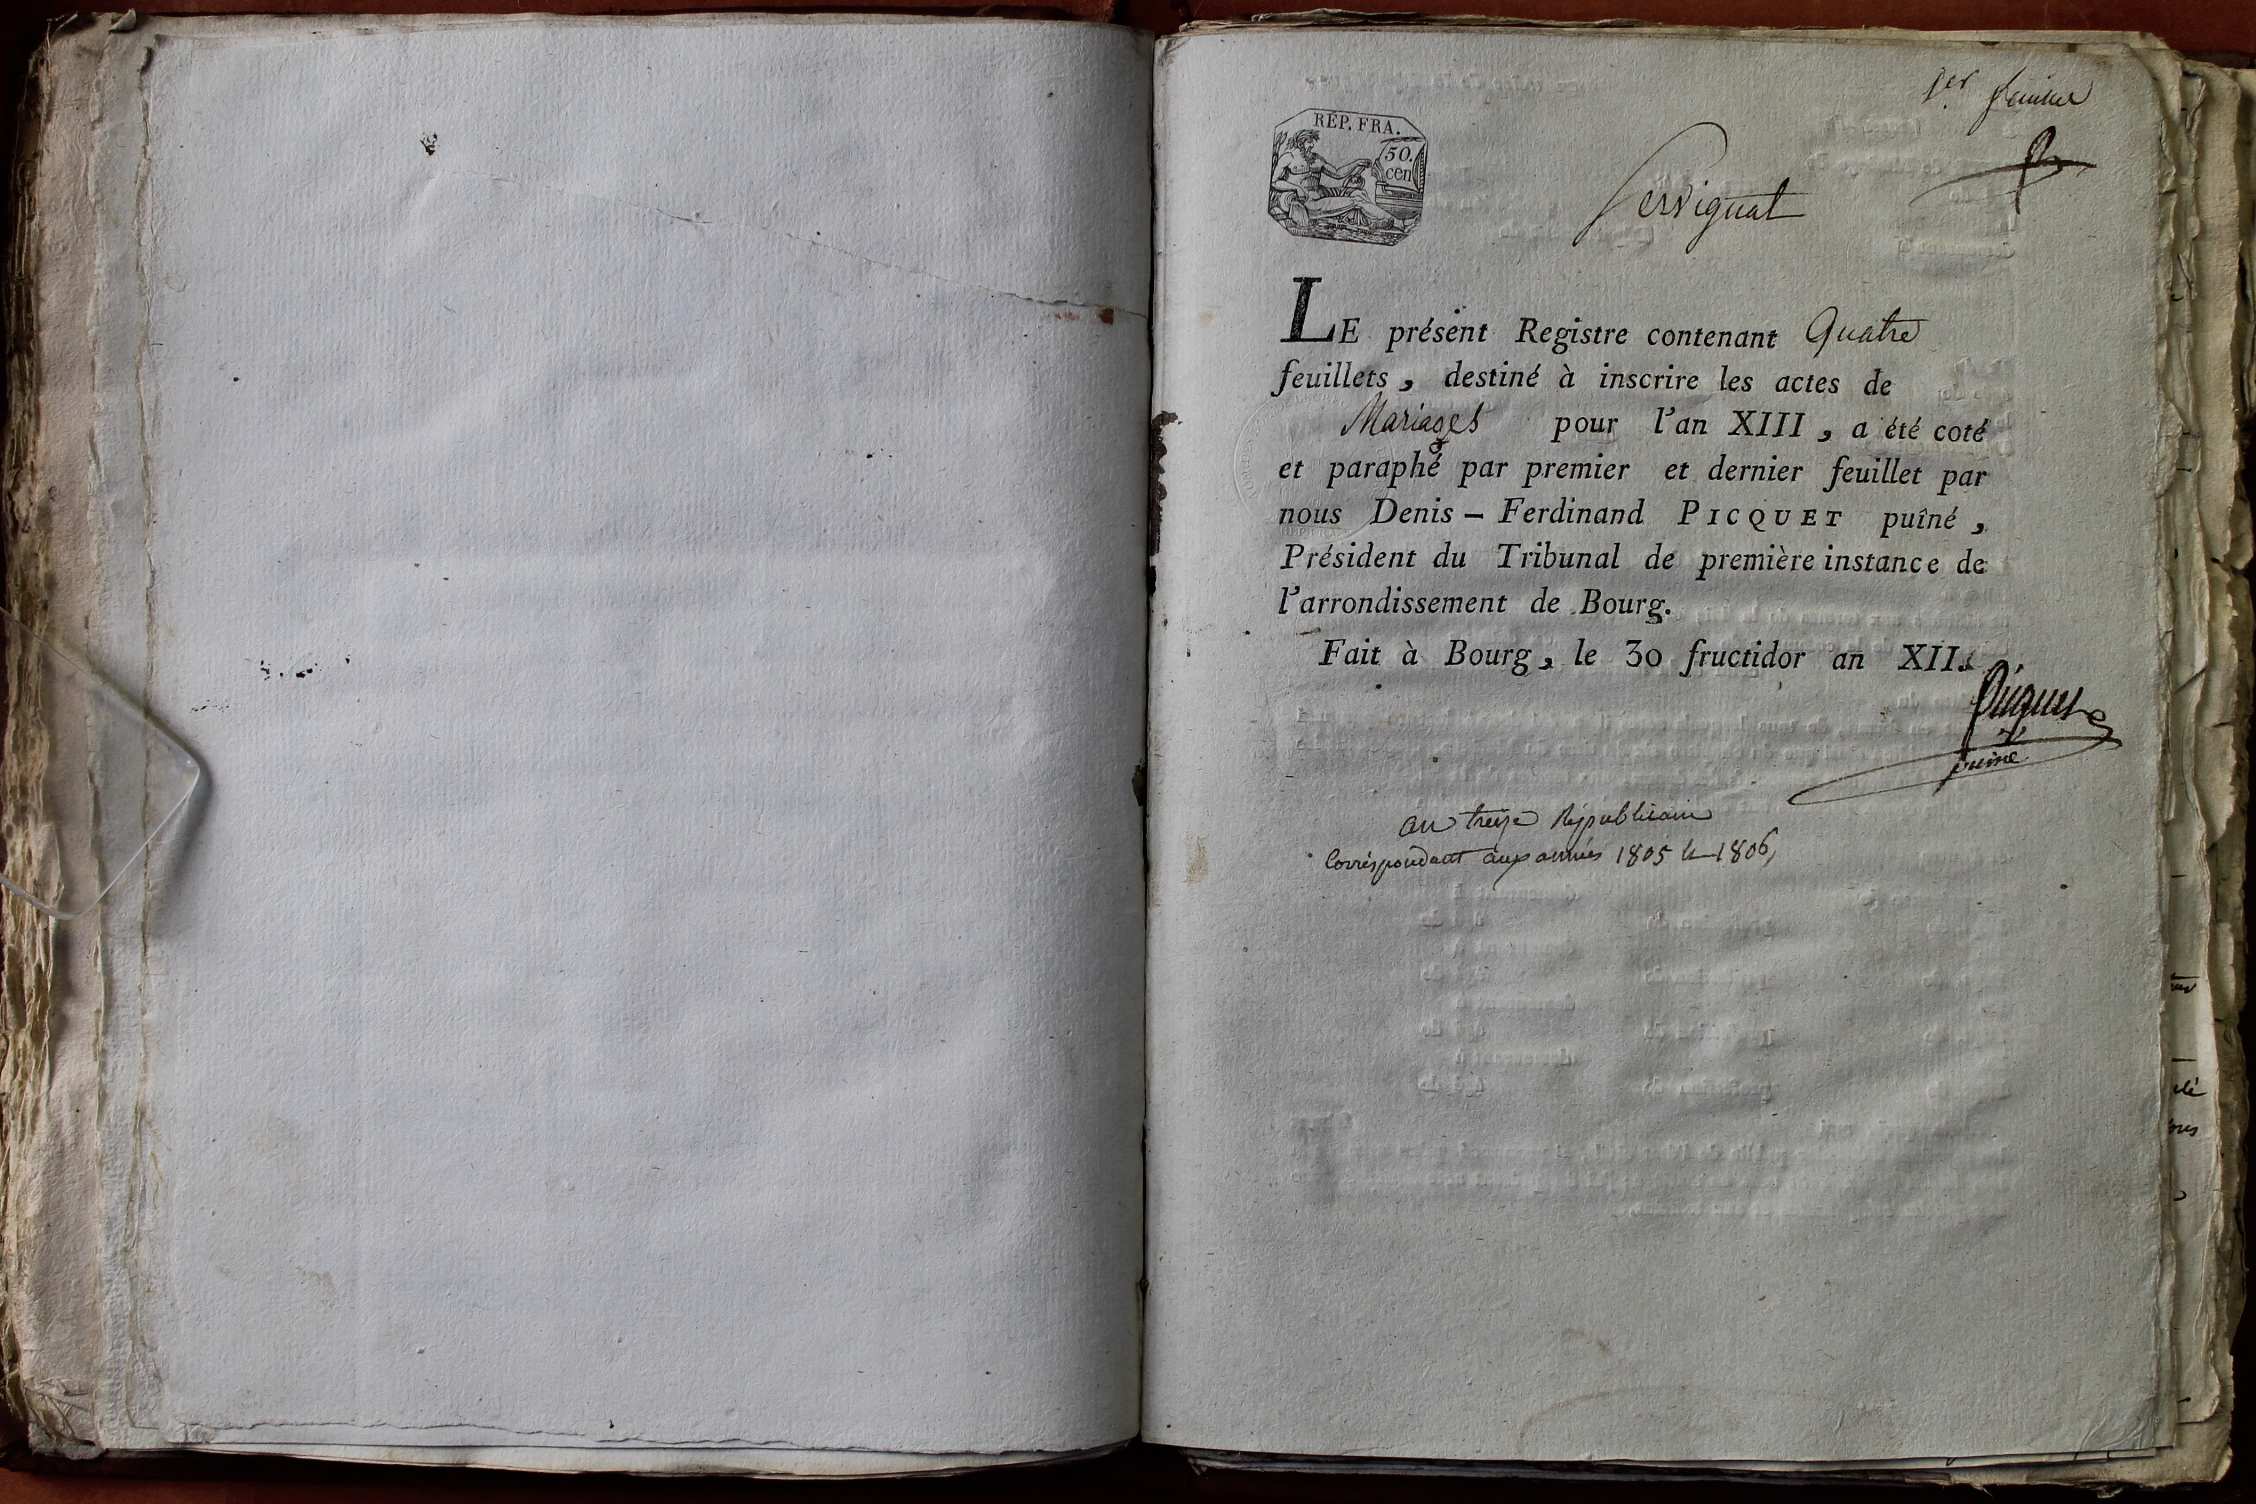 1er feuillet
RÉP. FRA.
50.
cen
Servignat
LE présent Registre contenant Quatre
feuillets, destiné à inscrire les actes de
Mariages pour l'an XIII, a été coté
et paraphé par premier et dernier feuillet par
nous Denis-Ferdinand PICQUET puîné,
Président du Tribunal de première instance de
l'arrondissement de Bourg.
Fait à Bourg, le 30 fructidor an XII.
Picquet
puiné
an treize Républicain
Corréspondant aux années 1805 & 1806,